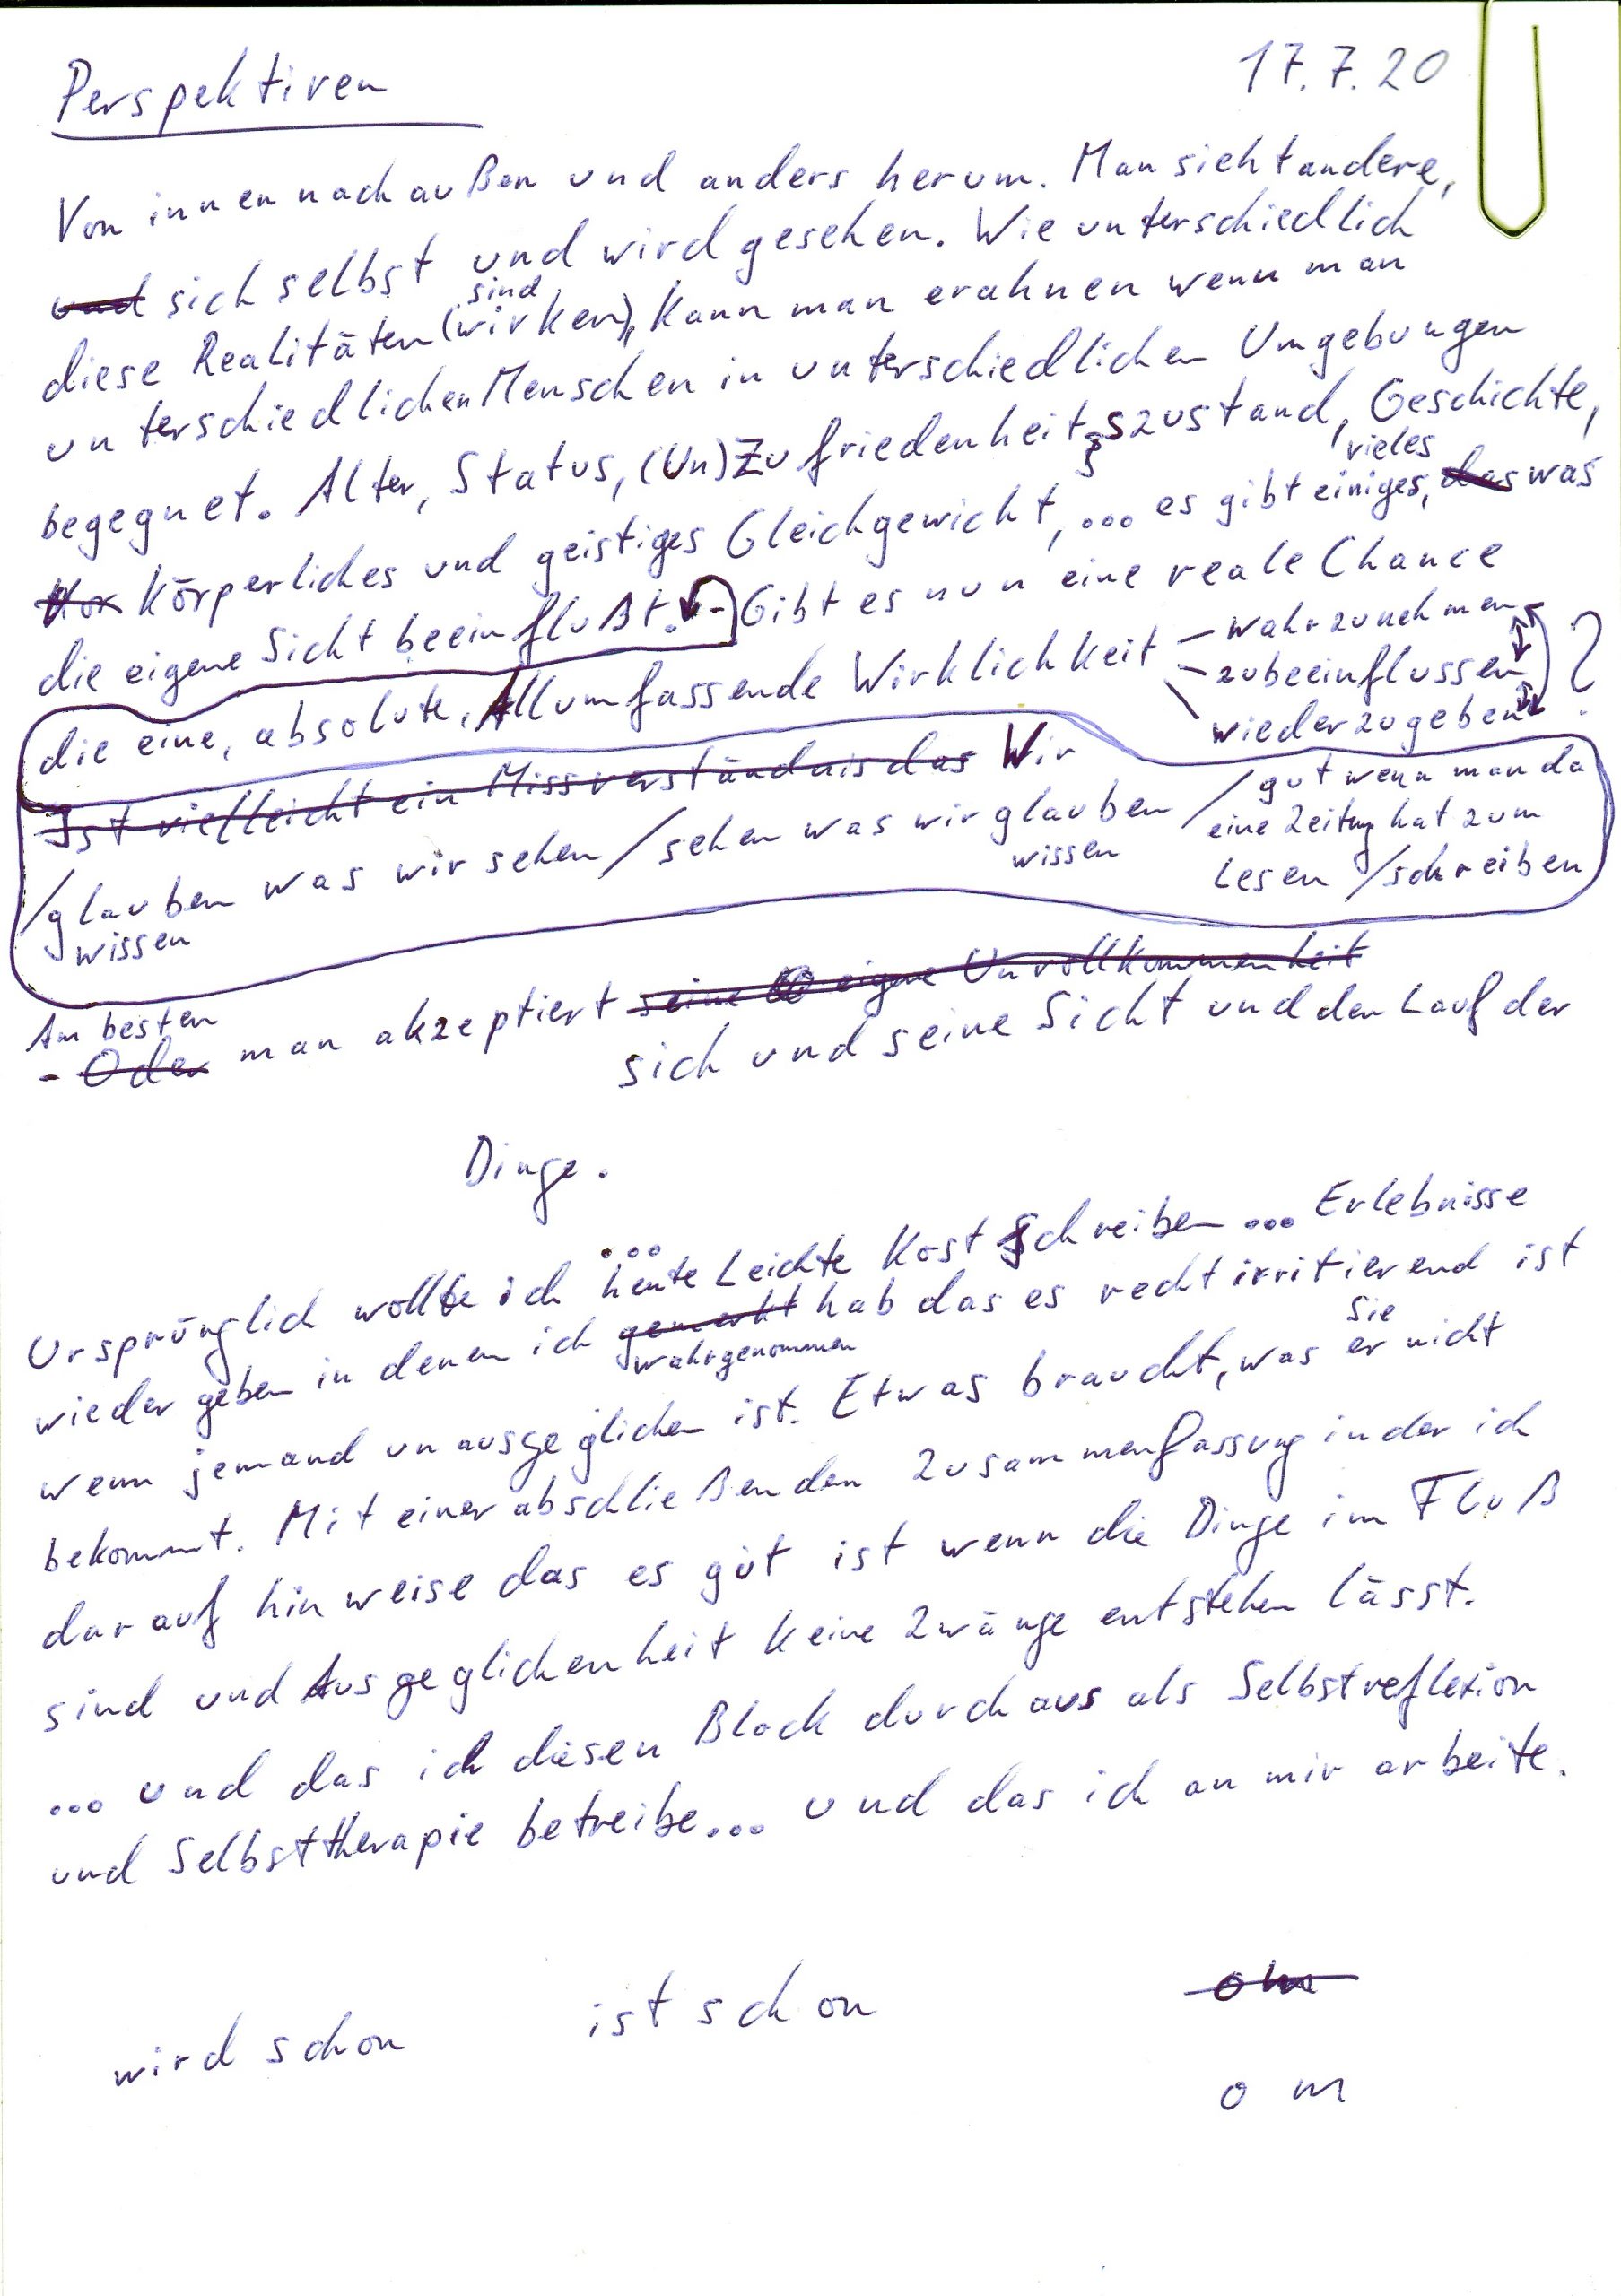 Perspektiven 17.7.20
Von innen nach außen und anders herum. Man sieht andere,
und sich selbst und wird gesehen. Wie unterschiedlich
sind
diese Realitäten (wirken), kann man erahnen wenn man
unterschiedlichen Menschen in unterschiedlichen Umgebungen
begegnet. Alter, Status, (Un)Zufriedenheitszustand, Geschichte,
vieles
Kör Körperliches und geistiges Gleichgewicht, ... es gibt einiges, das was
die eigene Sicht beeinflußt. - Gibt es nun eine reale Chance
die eine, absolute, Allumfassende Wirklichkeit - wahrzunehmen
- zu beeinflussen ?
wiederzugeben
Ist vielleicht ein Missverständnis das Wir
/glauben was wir sehen / sehen was wir glauben
wissen wissen
/ gut wenn man da
eine Zeitung hat zum
Lesen / schreiben
Am besten
- Oder man akzeptiert seine eigene Unvollkommenheit
sich und seine Sicht und den Lauf der
Dinge.
...
Ursprünglich wollte ich heute Leichte Kost schreiben ... Erlebnisse
wieder geben in denen ich gemerkt hab das es recht irritierend ist
wahrgenommen
wenn jemand unausgeglichen ist. Etwas braucht, was er nicht
sie
bekommt. Mit einer abschließenden Zusammenfassung in der ich
darauf hinweise das es gut ist wenn die Dinge im Fluß
sind und Ausgeglichenheit keine Zwänge entstehen lässt.
... und das ich diesen Block durchaus als Selbstreflexion
und Selbsttherapie betreibe... und das ich an mir arbeite.
om
wird schon ist schon
om